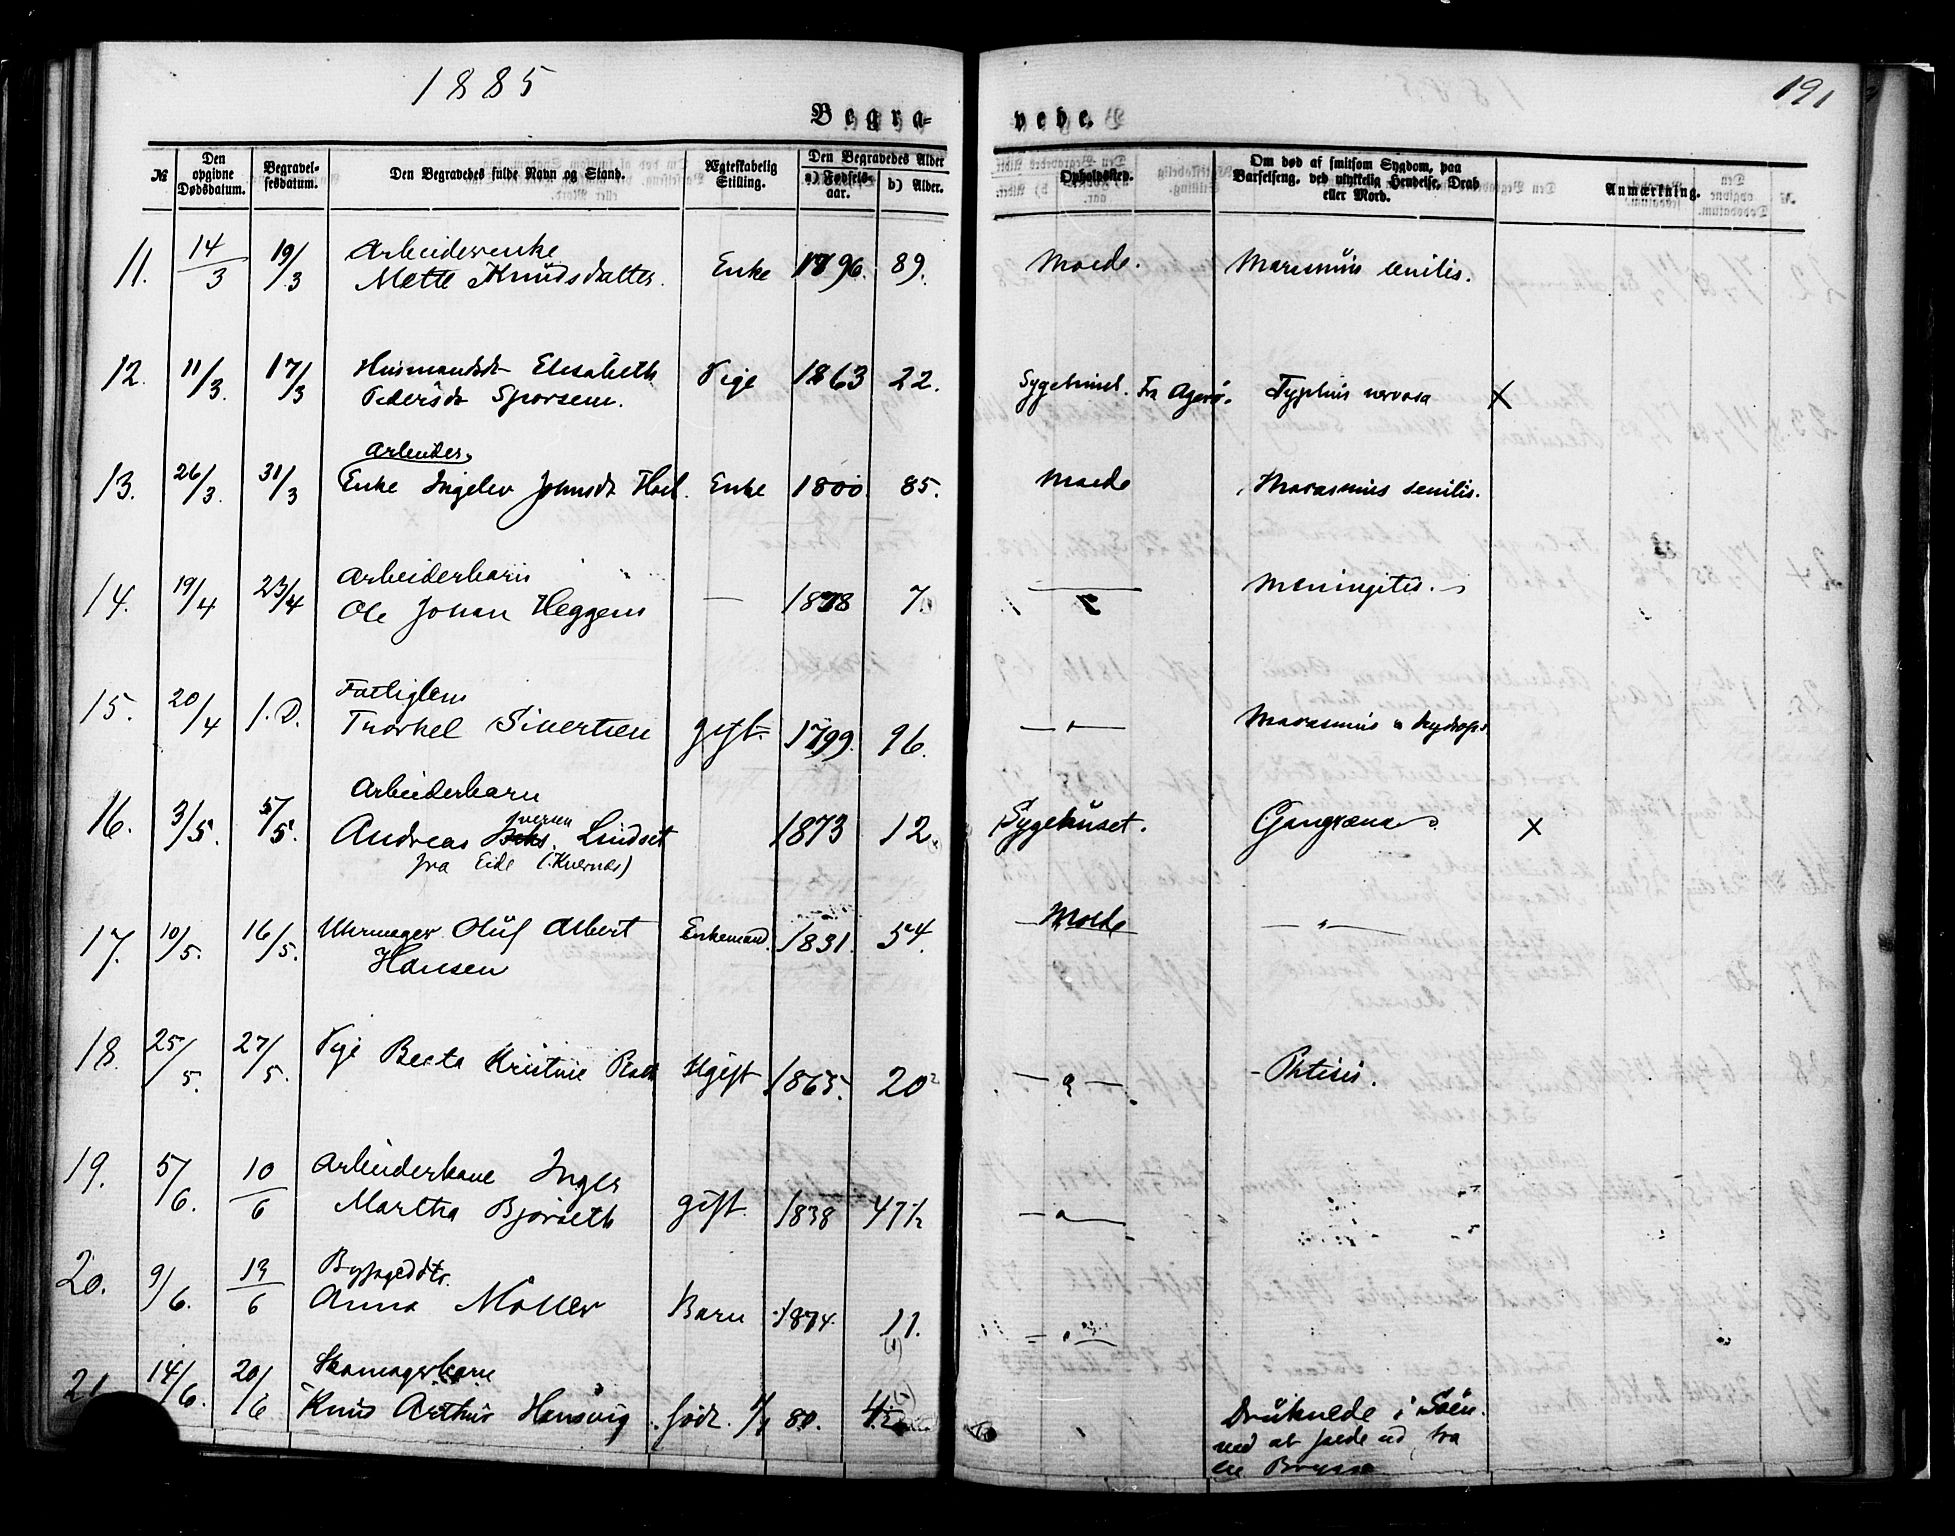 1885
191
Begra=
vede.
№
Den opgivne Dødsdatum.
Begravelsesdatum.
Den Begravedes fulde Navn og Stand.
Ægteskabelig Stilling.
Den Begravedes Alder
a) Fødselsaar.
b) Alder.
Opholdssted.
Om død af smitsom Sygdom, paa Barselseng, ved ulykkelig Hendelse, Drab eller Mord.
Anmærkning.
11. 14/3 19/3 Arbeiderenke
Mette Knudsdatter. Enke 1796. 89. Molde. Marasmus senilis.
12. 11/3. 17/3 Husmandsdt Elisabeth
Pedersdt Sporsem. Pige 1863 22. Sygehuset. Fra Agerø. Typhus nervosa X
13. 26/3. 31/3 Arbeider
Enke Ingelev Johnsdt Hoel. Enke 1800. 85. Molde Marasmus senilis.
14. 19/4 23/4 Arbeiderbarn
Ole Johan Heggem — 1878 7 — " — Meningitis.
15. 20/4 1. D. Fattiglem
Thorkel Sivertsen gift. 1799. 96. — " — Marasmus & hydrops.
16. 3/5. 5/5. Arbeiderbarn
Iversen
Andreas Lindset
fra Eide (Kvernes) 1873 12 Sygehuset. Gangræna X
17. 10/5. 16/5. Uhrmager Oluf Albert
Hansen Enkemand. 1831. 54. Molde — " —
18. 25/5. 27/5. Pige Berta Kristine Ugift 1865. 20 — " — Phtisis.
19. 5/6. 10/6 Arbeiderkone Inger
Martha Bjørseth gift. 1838 47 — " —
20. 9/6. 13/6 Byfogeddtr.
Anna Møller Barn 1874. 11. — " —
21 14/6. 20/6 Skomagerbarn
Knud Arthur Hansvig født. 1/1 80. Druknede i Søen
ved at falde ud fra
en Brygge